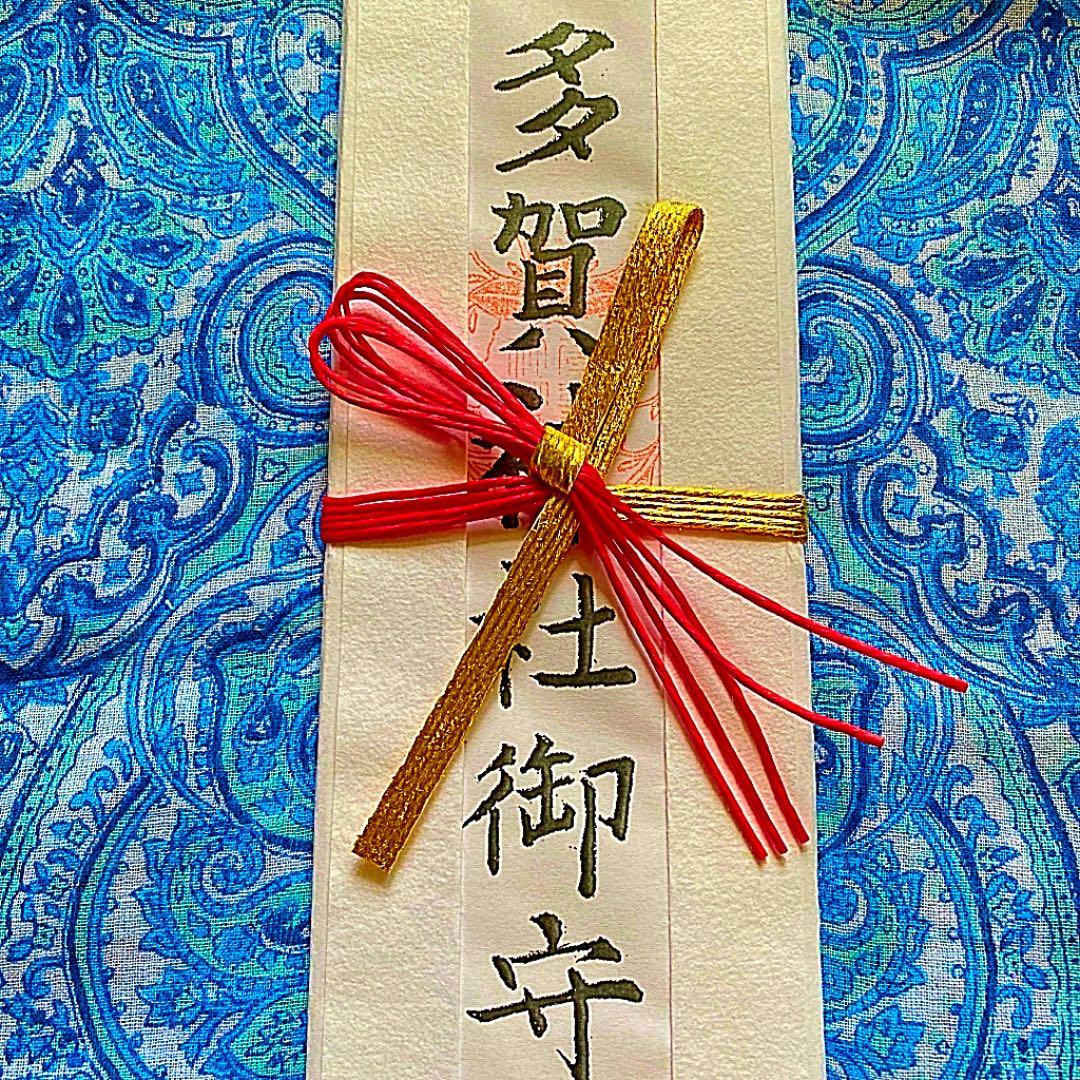 多賀神社御守